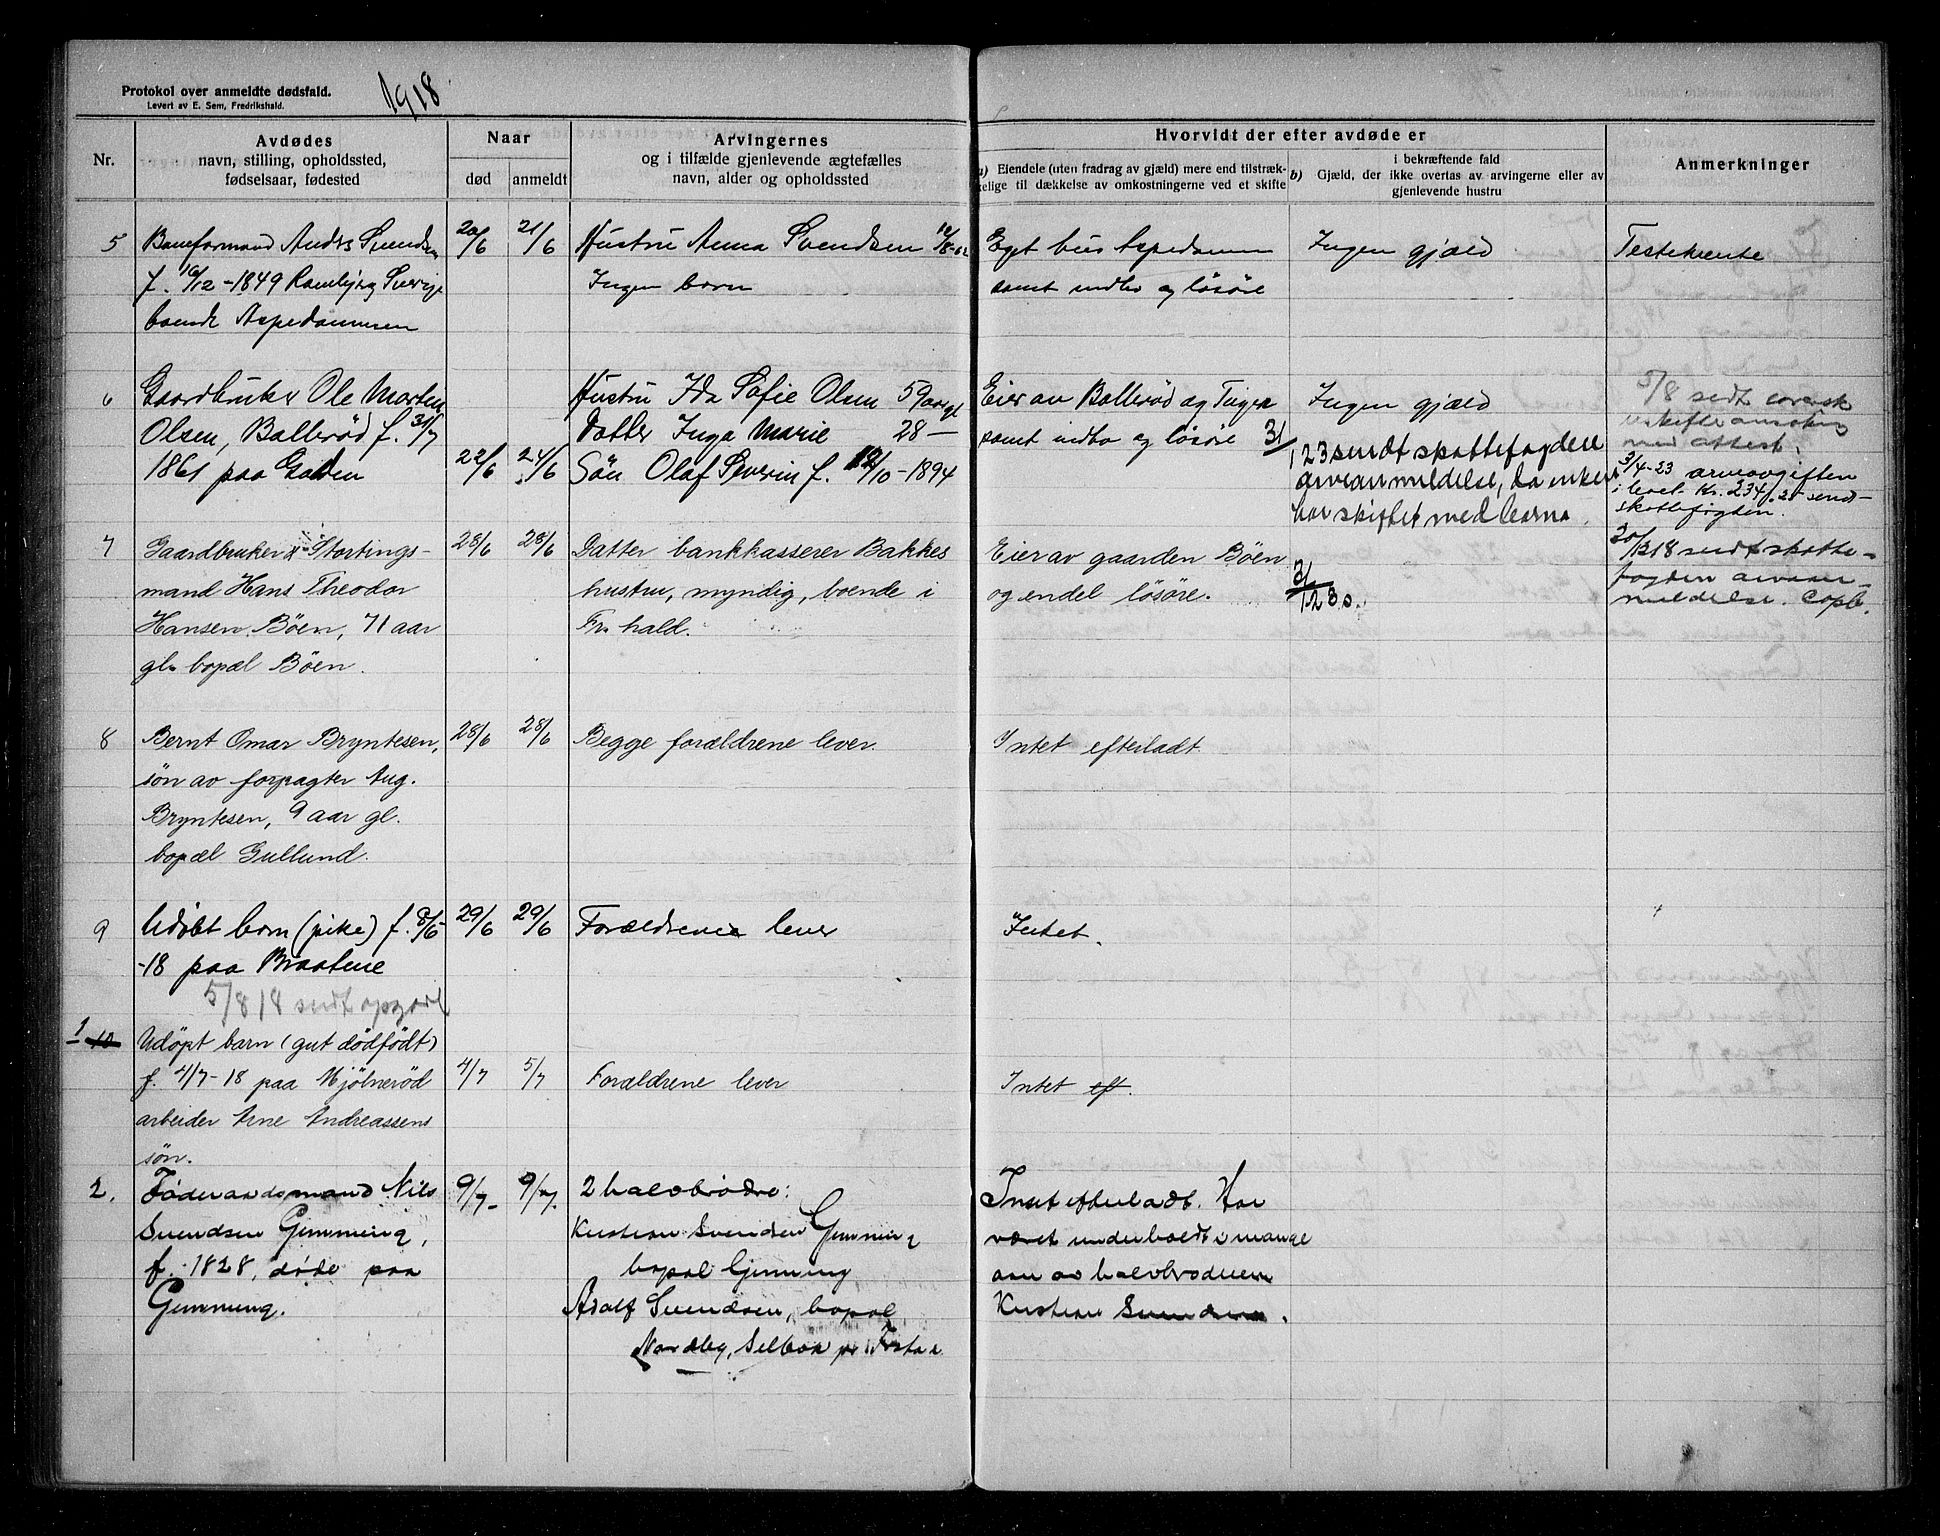 Protokol over anmeldte dødsfald.
Levert av E. Sem, Fredrikshald.
1918
Nr.
Avdødes
navn, stilling, opholdssted,
fødselsaar, fødested
Naar
død
anmeldt
Arvingernes
og i tilfælde gjenlevende ægtefælles
navn, alder og opholdssted
Hvorvidt der efter avdøde er
a) Eiendele (uten fradrag av gjæld) mere end tilstræk-
kelige til dækkelse av omkostningerne ved et skifte
i bekræftende fald
b) Gjæld, der ikke overtas av arvingerne eller av
gjenlevende hustru
Anmerkninger
5
Baneformand Andrs Svendsen
f. 10/12-1849 Sverige
boende Aspedammen
20/6
21/6
Hustru Anna Svendsen
Ingen born
Eget hus Aspedammen
samt indbo og løsöre
Ingen gjæld
6
Gaardbruker Ole Morten
Olsen, Ballerød f. 31/7
1861 paa
22/6
24/6
Hustru Ida Sofie Olsen 59 aar gl
Datter Inga Marie 28 —
Sön Olaf Severin f. 12/10-1894
Eier av Ballerød og
samt indbo og løsöre
Ingen gjæld
3/1 23 sendt skattefogden
arveanmeldelse, da enken
har skiftet med barna.
5/8 sendt
med attest.
3/4-23 arveavgiften
Kr. 234.25 send-
skattefogden.
7
Gaardbruker & Stortings-
mand Hans Theodor
Hansen Böen, 71 aar
gl. bopæl Böen.
28/6
28/6
Datter bankkasserer Bakkes
hustru, myndig, boende i
Fr. hald.
Eier av gaarden Böen
og endel løsöre.
20/12 18 sendt skatte-
fogden arvean-
meldelse.
8
Bernt Omar Bryntesen,
søn av forpagter Aug.
Bryntesen, 9 aar gl.
bopæl Gullund.
28/6
28/6
Begge forældrene lever.
Intet efterladt
9
Udöbt barn (pike) f. 8/5
-18 paa Braatene
29/6
29/6
Forældrene lever
Intet.
5/8 18 sendt
1 10
Udöpt barn (gut dödfödt)
f. 4/7-18 paa Mjölneröd
arbeider Arne Andreassens
sön.
4/7
5/7
Forældrene lever
Intet ef.
2.
Föderaadsmand Nils
Svendsen Gimming,
f. 1828, døde paa
Gimming.
9/7
9/7.
2 halvbrødre:
Kristian Svendsen Gimming
bopæl Gimming
Adolf Svendsen, bopæl
Nordby, Selbak pr
Intet efterladt. Har
været underholdt i mange
aar av halvbroderen
Kristian Svendsen.